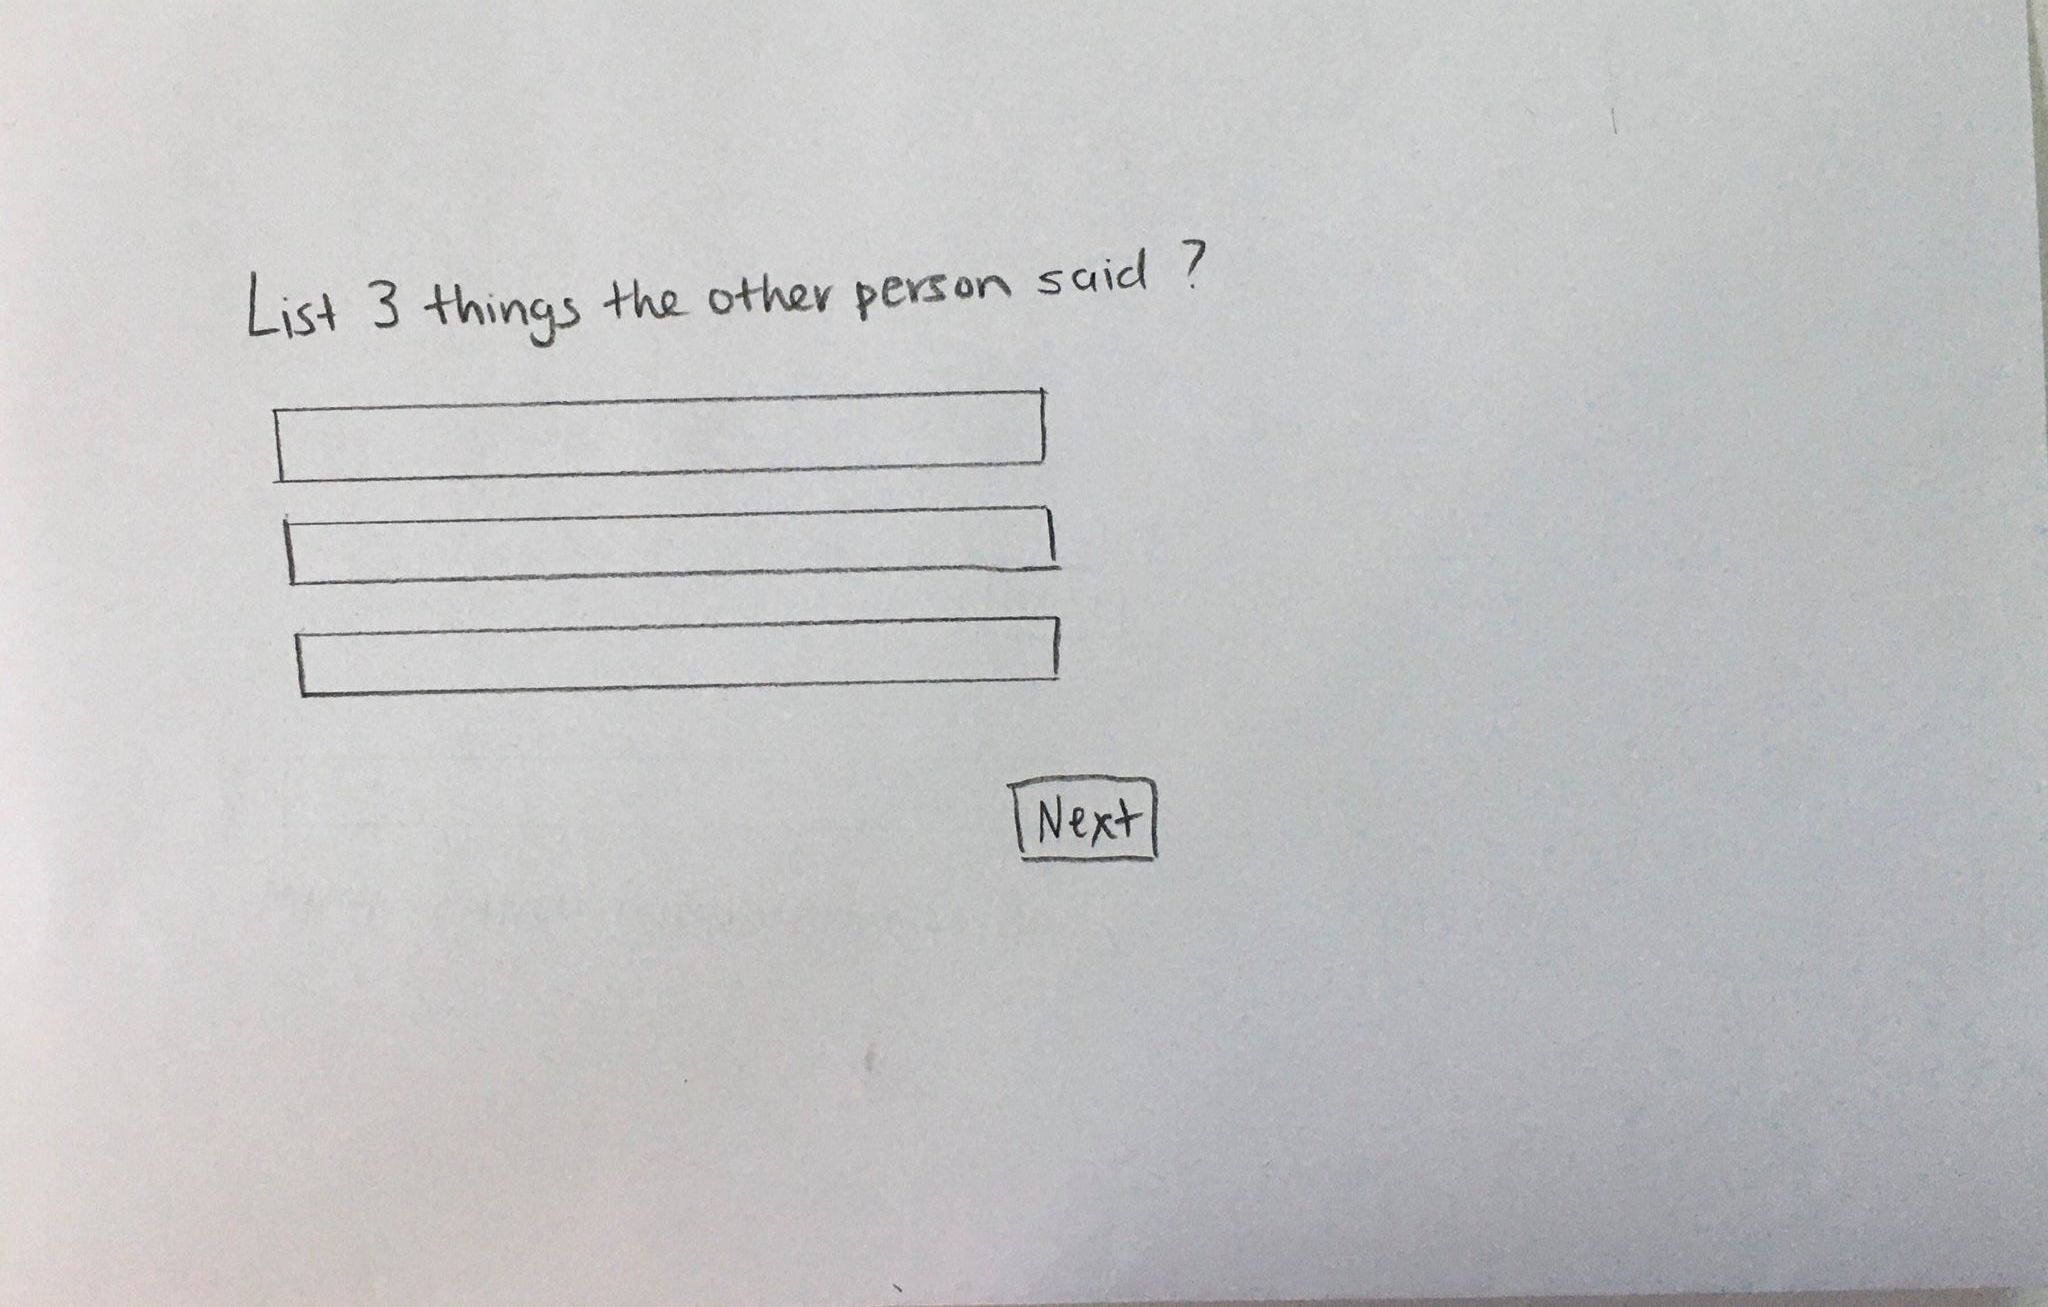 List 3 things the other person said ?
Next